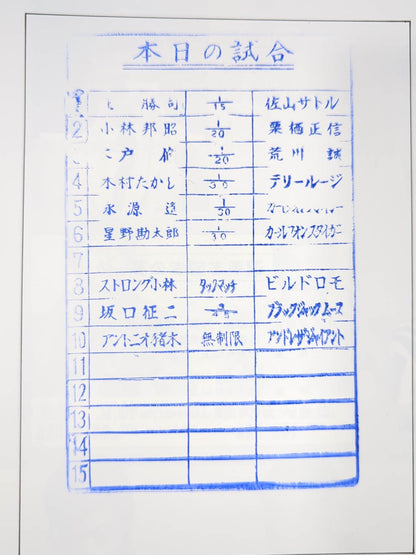 本日の試合
1 勝司 1/15 佐山サトル
2 小林邦昭 1/20 栗栖正信
戸 1/20 荒川 誠
4 木村たかし 1/30 テリールージ
5 永源遥 1/30
6 星野勘太郎 1/30 カールフォンスタイガー
7
8 ストロング小林 タッグマッチ ビルドロモ
9 坂口征二 ブラックジャックムース
10 アントニオ猪木 無制限 アンドレザジャイアント
11
12
13
14
15